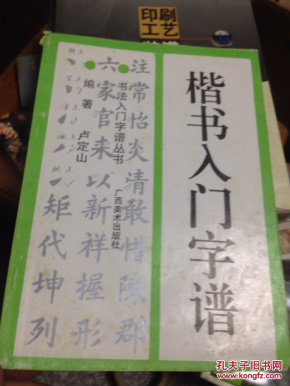 印刷
工艺
楷书入门字谱
书法入门字谱丛书
编著 卢定山
广西美术出版社
注常怡炎清敢惜陈郡
六家官来以新祥握形
矩代坤列
孔夫子旧书网